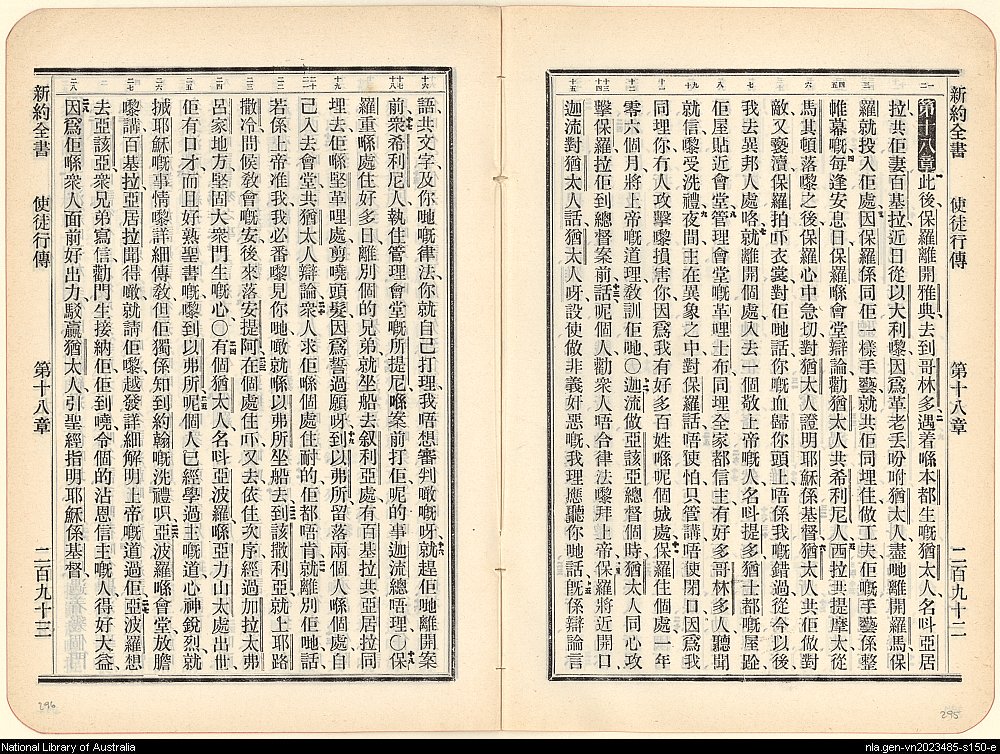 新約全書 使徒行傳 第十八章 二百九十二
第十八章此後保羅離開雅典、去到哥林多、遇着喺本都生嘅猶太人名呌亞居
拉、共佢妻百基拉、近日從以大利嚟、因爲革老丟吩咐猶太人盡哋離開羅馬、保
羅就投入佢處、因保羅係同佢一樣手藝、就共佢同埋住、做工夫、佢嘅手藝係整
帷幕嘅、每逢安息日、保羅喺會堂辯論、勸猶太人共希利尼人、西拉共提摩太從
馬其頓落嚟之後、保羅心中急切、對猶太人證明耶穌係基督、猶太人共佢做對
敵、又褻瀆、保羅拍吓衣裳、對佢哋話、你嘅血歸你頭上、唔係我嘅錯過、從今以後
我去異邦人處咯、就離開個處、入去一個敬上帝嘅人、名呌提多猶士都嘅屋、跧
佢屋貼近會堂、管理會堂嘅革哩士布、同埋全家都信主、有好多哥林多人、聽聞
就信、嚟受洗禮、夜間主在異象之中、對保羅話、唔使怕、只管講、唔使閉口、因爲我
同埋你、有人攻擊嚟損害你、因爲我有好多百姓喺呢個城處、保羅住個處一年
零六個月、將上帝嘅道理、敎訓佢哋〇迦流做亞該亞總督個時、猶太人同心攻
擊保羅、拉佢到總督案前、話、呢個人勸衆人唔合律法嚟拜上帝、保羅將近開口
迦流對猶太人話、猶太人呀、設使做非義奸惡嘅、我理應聽你哋話、旣係辯論言
語、共文字、及你哋嘅律法、你就自己打理、我唔想審判噉嘅呀、就趕佢哋離開案
前、衆希利尼人執住管理會堂嘅所提尼、喺案前打佢、呢的事迦流總唔理〇保
羅重喺處住好多日、離別個的兄弟、就坐船去叙利亞處、有百基拉共亞居拉同
埋去、佢喺堅革哩處剪嘵頭髮、因爲誓過願呀、到以弗所、留落兩個人喺個處、自
己入去會堂、共猶太人辯論、衆人求佢喺個處住耐的、佢都唔肯、就離別佢哋話
若係上帝准我、我必番嚟見你哋噉、就喺以弗所坐船去、到該撒利亞、就上耶路
撒冷、問候敎會嘅安、後來落安提阿、在個處住吓、又去、依住次序經過加拉太弗
呂家地方、堅固大衆門生嘅心〇有個猶太人名呌亞波羅、喺亞力山太處出世
佢有口才、而且好熟聖書嘅、嚟到以弗所、呢個人已經學過主嘅道、心神銳烈、就
搣耶穌嘅事情、嚟詳細傳敎、但佢獨係知到約翰嘅洗禮唄、亞波羅喺會堂放膽
嚟講、百基拉亞居拉聞得噉、就請佢嚟、越發詳細解明上帝嘅道過佢、亞波羅想
去亞該亞、衆兄弟寫信勸門生接納佢、佢到嘵、令個的沾恩信主嘅人得好大益
因爲佢喺衆人面前、好出力駁贏猶太人、引聖經指明耶穌係基督、
新約全書 使徒行傳 第十八章 二百九十三
296
295
National Library of Australia
nla.gen-vn2023485-s150-e